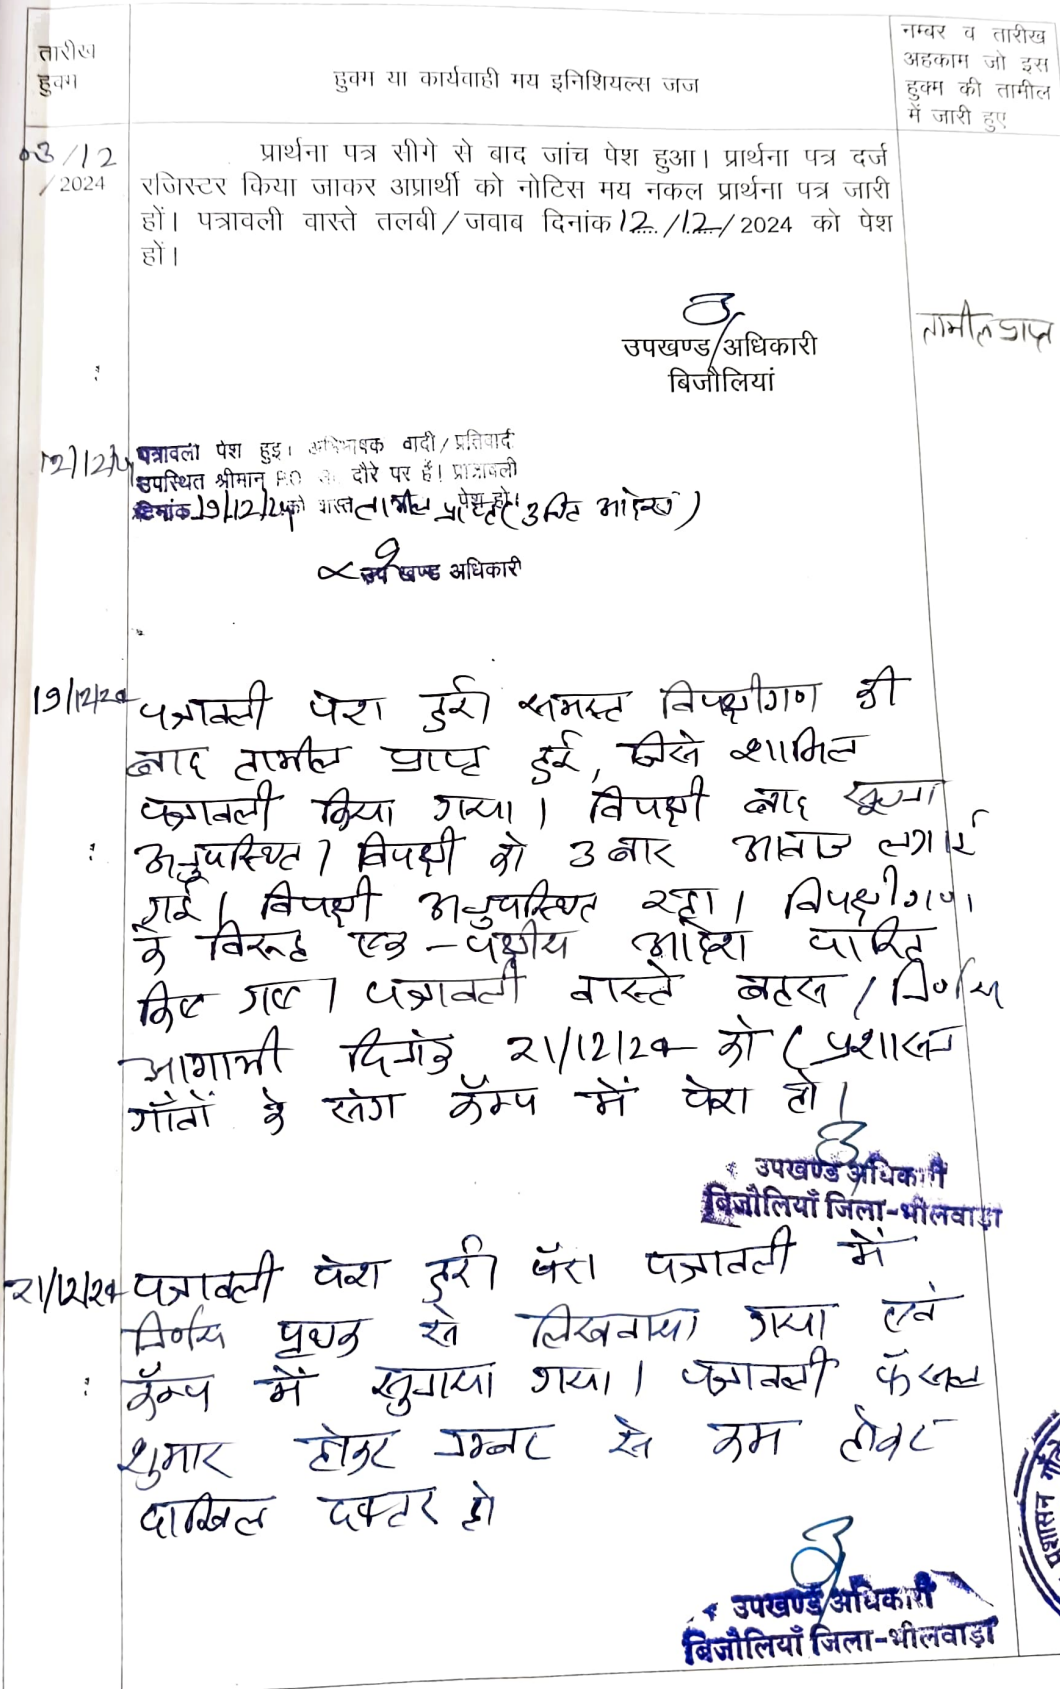 तारीख
हुक्म
हुक्म या कार्यवाही मय इनिशियल्स जज
नम्बर व तारीख
अहकाम जो इस
हुक्म की तामील
में जारी हुए
03/12
/2024
प्रार्थना पत्र सीगे से बाद जांच पेश हुआ। प्रार्थना पत्र दर्ज
रजिस्टर किया जाकर अप्रार्थी को नोटिस मय नकल प्रार्थना पत्र जारी
हों। पत्रावली वास्ते तलवी/जवाब दिनांक 12/12/2024 को पेश
हों।
उपखण्ड अधिकारी
बिजौलियां
तामील प्राप्त
12/12/24 पत्रावली पेश हुइ। अभिभाषक वादी/प्रतिवादी
उपस्थित श्रीमान् P.O. के दौरे पर हैं। प्रत्रावली
दिनांक 19/12/24 को वास्ते तामील पेश हो।
उप खण्ड अधिकारी
19/12/24 पत्रावली पेश हुई। समस्त विपक्षीगण की
बाद तामील प्राप्त हुई, जिसे शामिल
पत्रावली किया गया। विपक्षी बाद सूचना
अनुपस्थित। विपक्षी को 3 बार आवाज लगाई
गई। विपक्षी अनुपस्थित रहा। विपक्षीगण
के विरूद्ध एक-पक्षीय आदेश पारित
किए गए। पत्रावली वास्ते बहस/निर्णय
आगामी दिनांक 21/12/24 को (प्रशासन
गाँवों के संग कॅम्प में पेश हो।
उपखण्ड अधिकारी
बिजौलियाँ जिला-भीलवाड़ा
21/12/24 पत्रावली पेश हुई। पत्रावली में
निर्णय पृथक से लिखवाया गया एवं
कॅम्प में सुनाया गया। पत्रावली फॅसल
शुमार होकर नम्बर से कम होकर
दाखिल दफ्तर हो
उपखण्ड अधिकारी
बिजौलियाँ जिला-भीलवाड़ा
प्रशासन गाँव